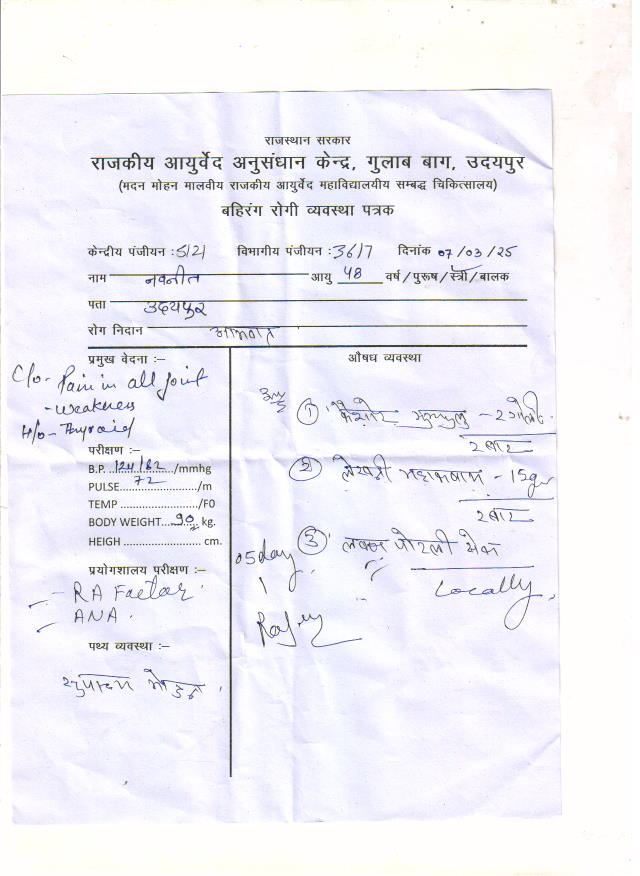 राजस्थान सरकार
राजकीय आयुर्वेद अनुसंधान केन्द्र, गुलाब बाग, उदयपुर
(मदन मोहन मालवीय राजकीय आयुर्वेद महाविद्यालयीय सम्बद्ध चिकित्सालय)
बहिरंग रोगी व्यवस्था पत्रक
केन्द्रीय पंजीयन : 5121 विभागीय पंजीयन : 3617 दिनांक 07/03/25
नाम नवनीत आयु 48 वर्ष/पुरूष/स्त्री/बालक
पता उदयपुर
रोग निदान आमवात
प्रमुख वेदना :–
औषध व्यवस्था
C/o- Pain in all joint
- weakness
H/o - Thyroid
परीक्षण :–
B.P. 124/82 /mmhg
PULSE 72 /m
TEMP /F0
BODY WEIGHT 90 kg.
HEIGH cm.
प्रयोगशालय परीक्षण :–
- RA Factor.
- ANA.
पथ्य व्यवस्था :–
① कैशोर गुग्गुलु - 2 गोली
2 बार
② - 15gm
2 बार
③ लवण पोटली सेक
Locally
05 day